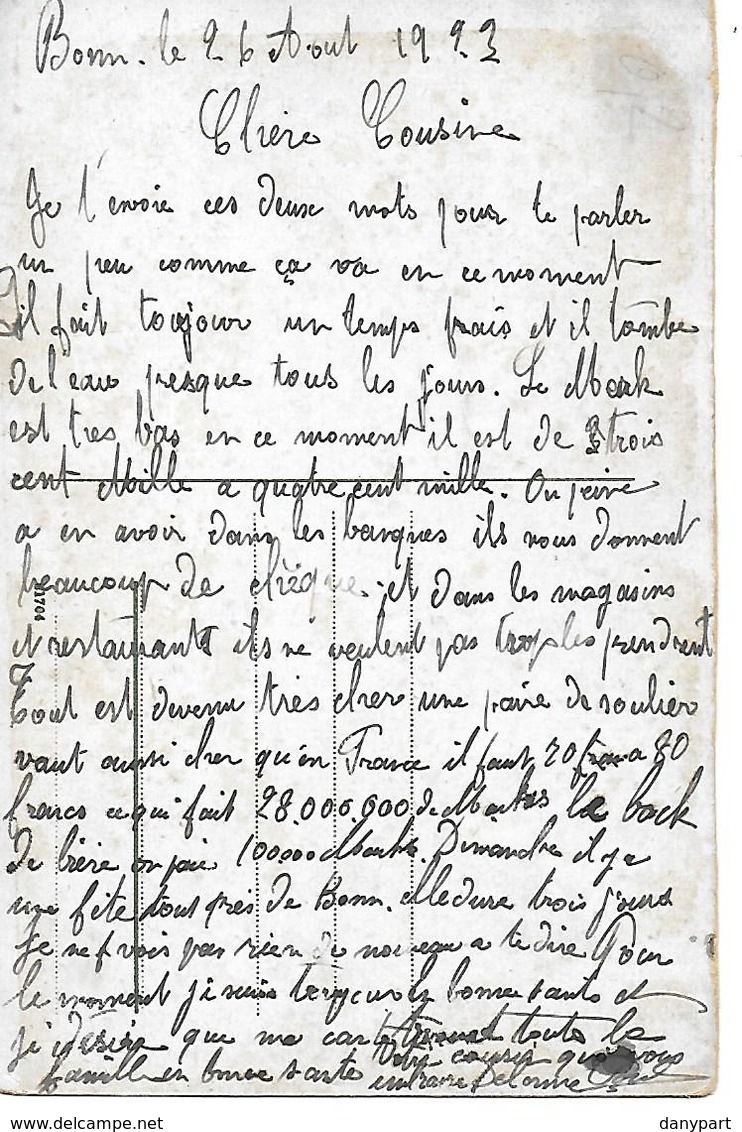 Bonn. le 26 Aout 1923
Chère Cousine
Je t'envoie ces deux mots pour te parler
un peu comme ça va en ce moment
il fait toujour un temps frais et il tombe
de l'eau presque tous les jours. Le Mark
est tres bas en ce moment il est de trois
cent Mille a quatre cent mille. On peine
a en avoir dans les banques ils nous donnent
beaucoup de chèque. et dans les magasins
et restaurants ils ne veulent pas trop les prendrent
Tout est devenu très cher une paire de soulier
vaut aussi cher qu'en France il faut 70 a 80
francs ce qui fait 28.000.000 de Marks le bock
de bière on paie 100000 Marks. Dimanche il y a
une fête tout près de Bonn. elle dure trois jours
Je ne vois pas rien de nouveau a te dire Pour
le moment je suis toujour en bonne santé et
je désire que ma carte trouve toute la
famille en bonne sante Ton cousin qui vous
embrasse Delorme
21704
danypart